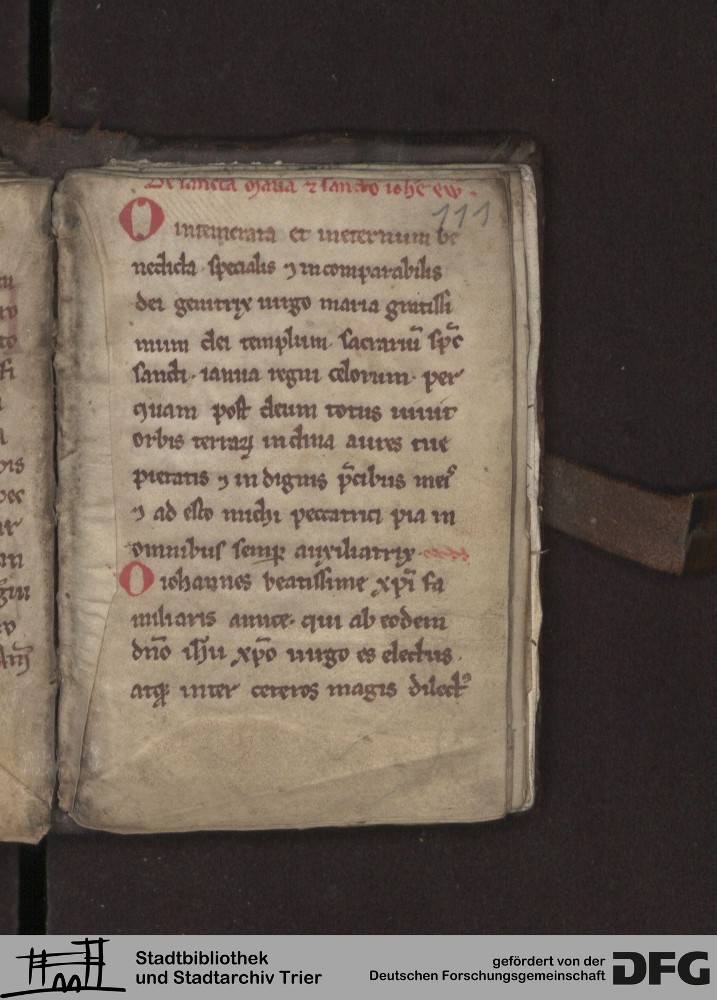 De sancta maria ⁊ sancto ioh̅e ew̅
111
O intemerata et ineternum be
nedicta· specialis ⁊ incomparabilis
dei genitrix uirgo maria gratissi
mum dei templum· sacrariu̅ sp̅c
sancti· ianua regni celorum· per
quam post deum totus uiuit
orbis terraꝝ inclina aures tue
pietatis ⁊ indignis p̅cibus meis
⁊ ad esto michi peccatrici pia in
omnibus semꝑ auxiliatrix
O iohannes beatissime xp̅i fa
miliaris amice· qui ab eodem
dn̅o ih̅u xp̅o uirgo es electus·
atqꝫ inter ceteros magis dilectꝰ
Stadtbibliothek
und Stadtarchiv Trier
gefördert von der
Deutschen Forschungsgemeinschaft
DFG